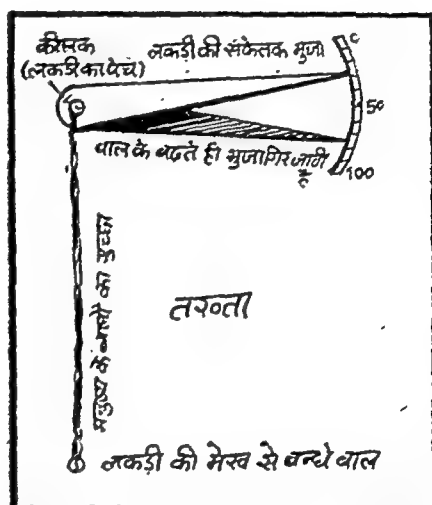 कीलक
(लकडी का पेंच)
लकड़ी की संकेतक भुजा
0
50
100
बाल के बढ़ते ही भुजा गिर जाती
है
मनुष्य के बालों का गुच्छा
तख्ता
लकड़ी की मेख से बन्धे बाल